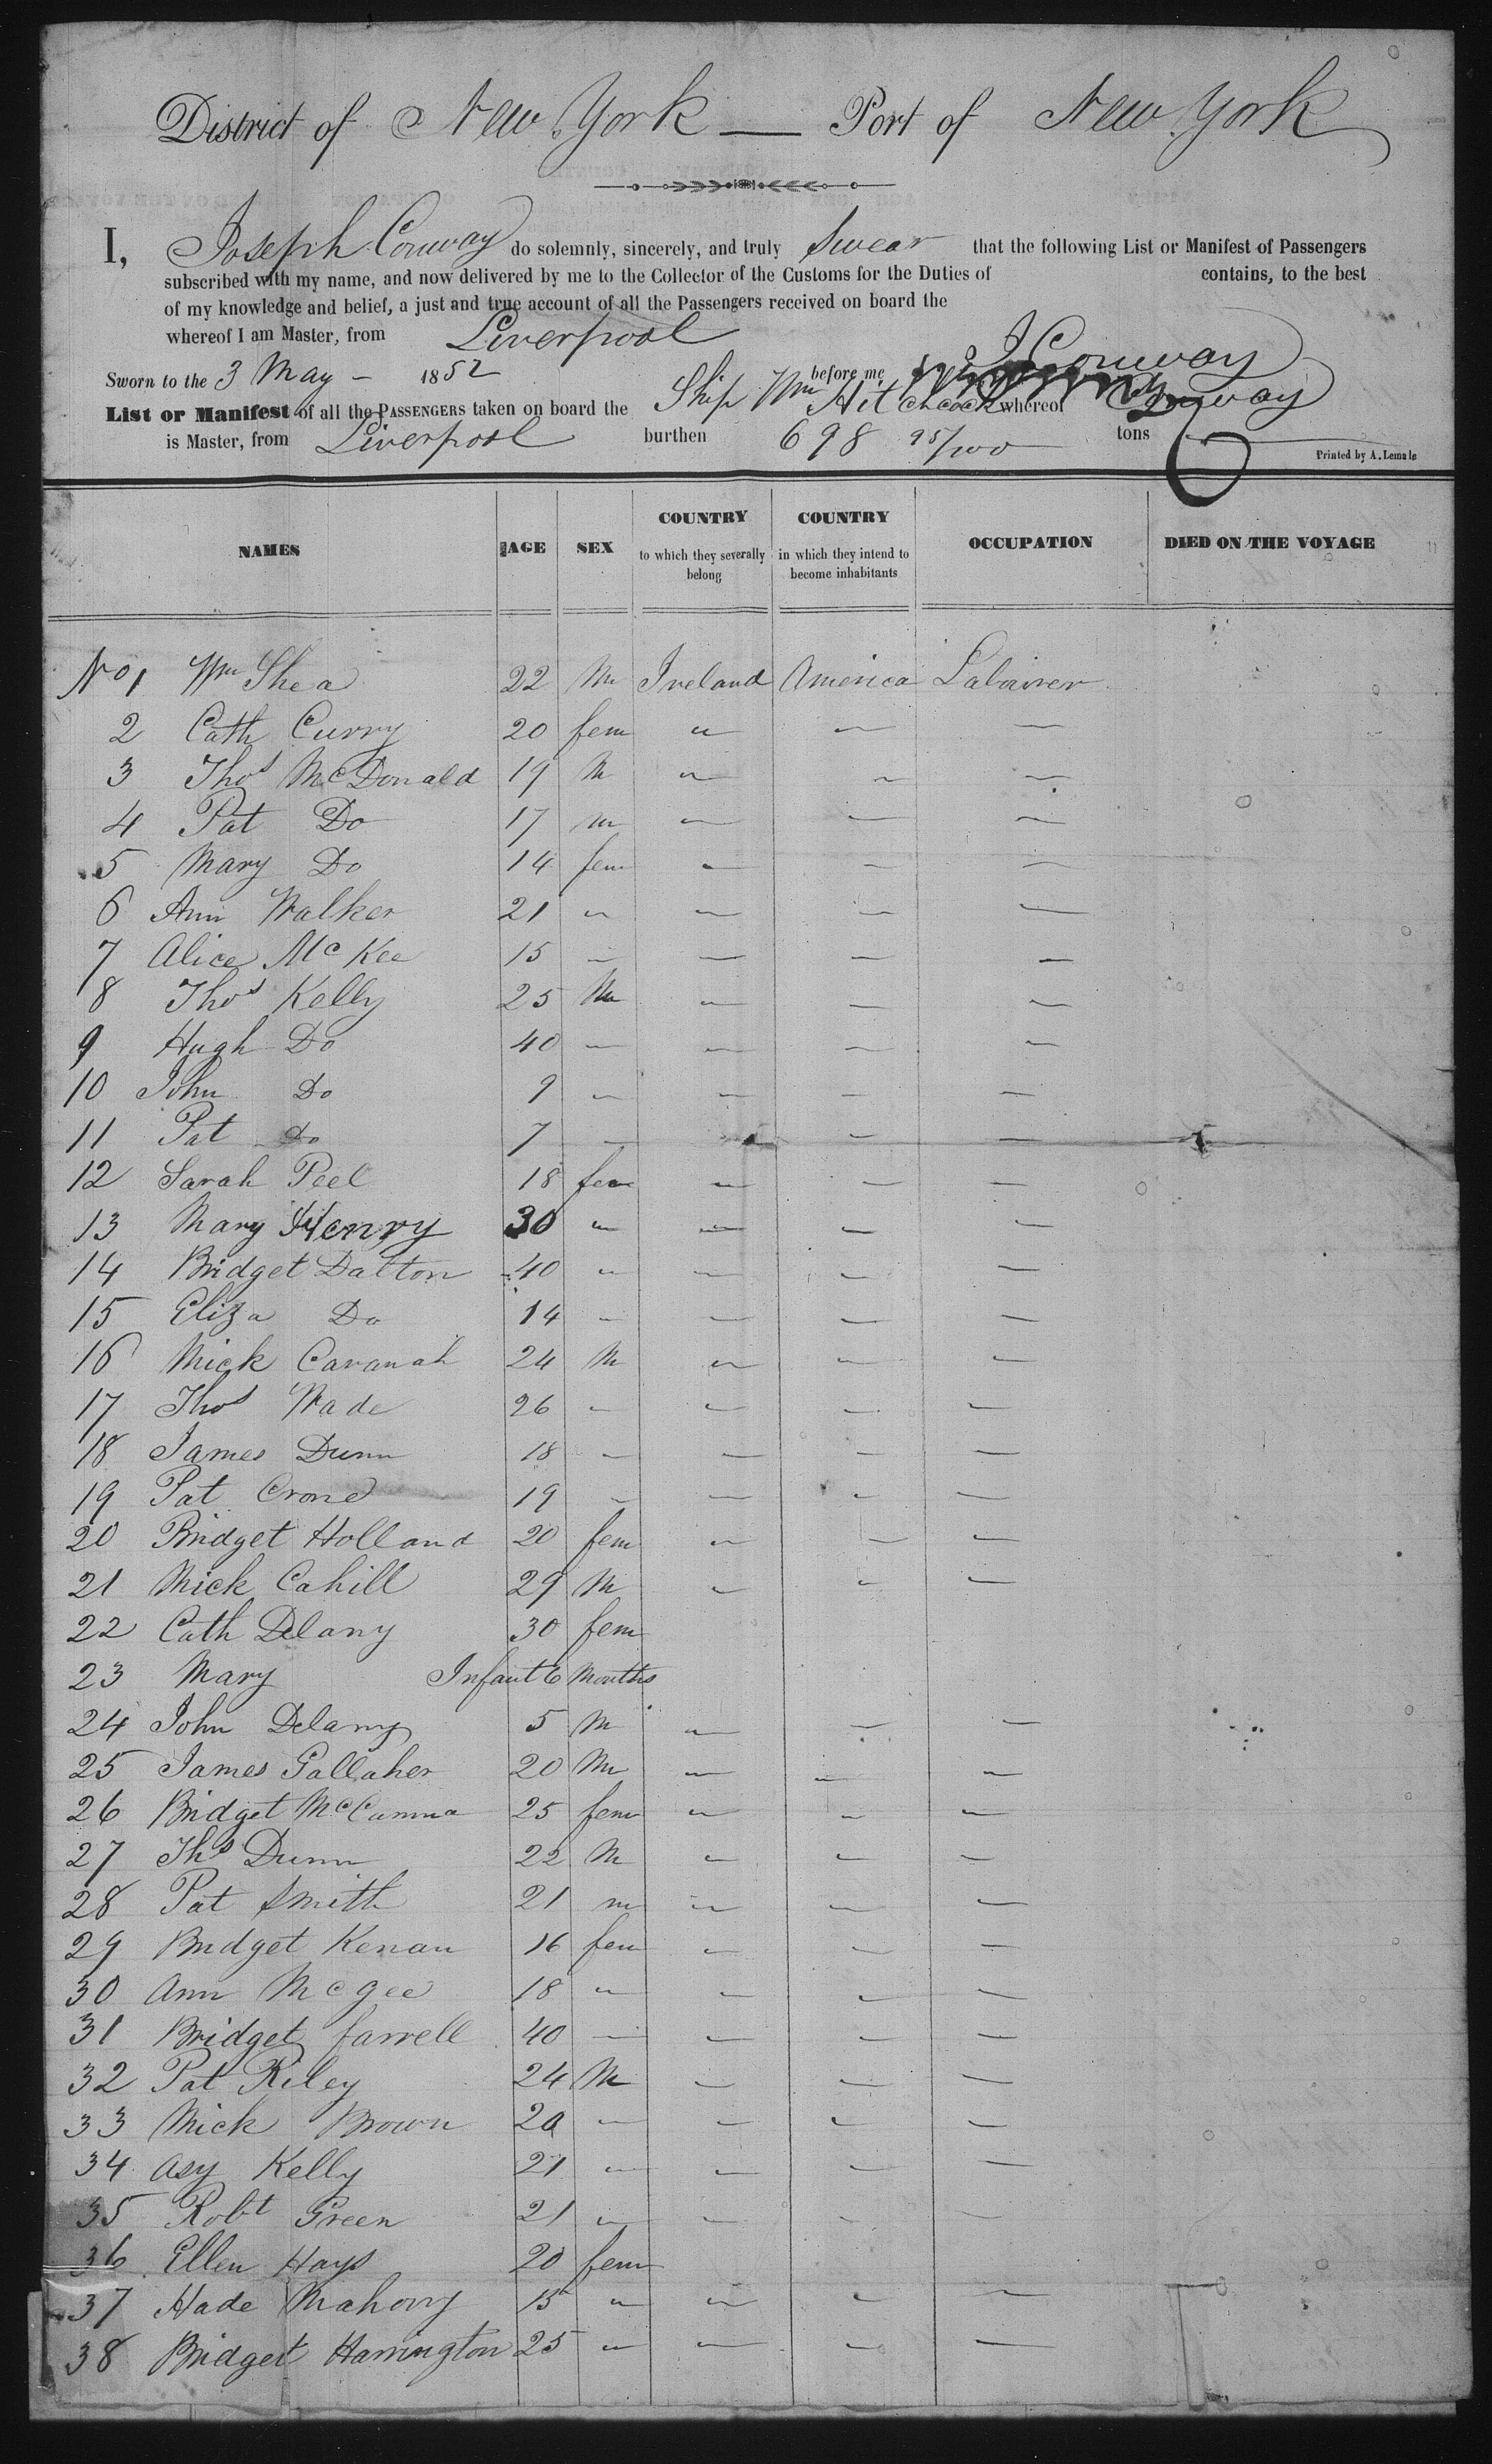 District of New York — Port of New York
I, Joseph Conway do solemnly, sincerely, and truly swear that the following List or Manifest of Passengers
subscribed with my name, and now delivered by me to the Collector of the Customs for the Duties of contains, to the best
of my knowledge and belief, a just and true account of all the Passengers received on board the
whereof I am Master, from Liverpool
J Conway
Sworn to the 3 May – 1852 before me
List or Manifest of all the PASSENGERS taken on board the Ship Wm Hitchcock whereof Conway
is Master, from Liverpool burthen 698 95/100 tons
Printed by A. Lemale
NAMES AGE SEX COUNTRY to which they severally belong COUNTRY in which they intend to become inhabitants OCCUPATION DIED ON THE VOYAGE
No 1 Wm Shea 22 M Ireland America Labourer
2 Cath Curry 20 fem " — —
3 Thos McDonald 19 M " — —
4 Pat Do 17 m — — —
5 Mary Do 14 fem — — —
6 Ann Walker 21 " — — —
7 Alice McKee 15 — — — —
8 Thos Kelly 25 M — — —
9 Hugh Do 40 — — — —
10 John Do 9 — — — —
11 Pat Do 7 — — — —
12 Sarah Peel 18 fem — — —
13 Mary Henry 30 " — — —
14 Bridget Dalton 40 " — — —
15 Eliza Do 14 — — — —
16 Mick Cavanah 24 M " — —
17 Thos Wade 26 — — — —
18 James Dunn 18 — — — —
19 Pat Crone 19 — — — —
20 Bridget Holland 20 fem " — —
21 Mick Cahill 29 M — — —
22 Cath Delany 30 fem
23 Mary Infant 6 Months
24 John Delany 5 M " — —
25 James Gallaher 20 M — — —
26 Bridget McCumna 25 fem " — —
27 Ths Dunn 22 M — — —
28 Pat Smith 21 m " — —
29 Bridget Kenan 16 fem — — —
30 Ann McGee 18 " — — —
31 Bridget farrell 40 — — — —
32 Pat Riley 24 M — — —
33 Mick Brown 20 — — — —
34 Asy Kelly 21 — — — —
35 Robt Green 21 — — — —
36 Ellen Hays 20 fem
37 Hade Mahony 15 " " — —
38 Bridget Harrington 25 " — — —